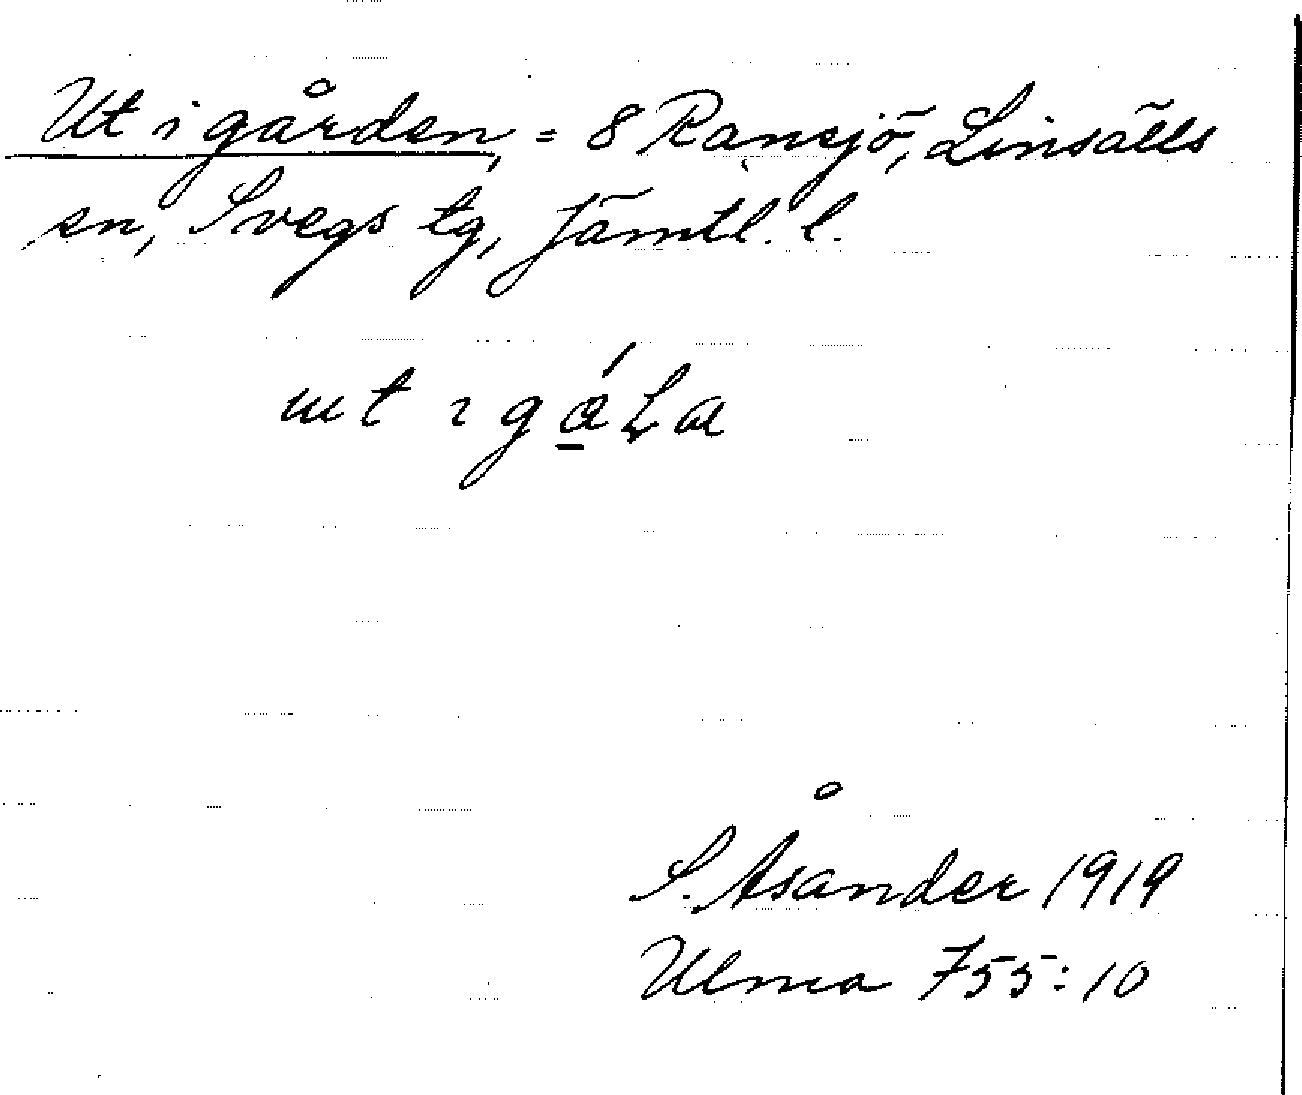 Ut i gården, = 8 Ransjö, Linsälls
sn, Svegs tg, Jämtl. l.
ut ı gáLa
S. Åsander 1919
Ulma 755:10